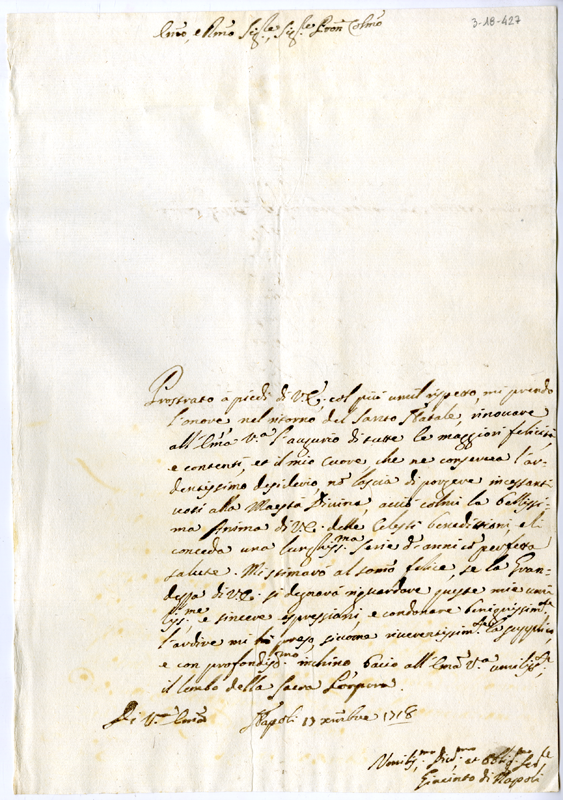 3-18-427
Em̃o, e Rm̃o Sig.re, Sig.re Pron Colmo
Prostrato à piedi di V.E. col più umil rispetto, mi prendo
l'onore nel ritorno del Santo Natale, rinovare
all'Em̃a V.a l'augurio di tutte le maggiori felicità,
e contenti, et il mio cuore che ne conserva l'ar-
dentissimo desiderio, nõ lascia di porgere incessanti
voti alla Maestà Divina, acciò colmi la bellissi-
ma Anima di V.E. delle Celesti benedizzioni, e li
conceda una lunghiss.ma serie d'anni cõ perfetta
salute. Mi stimarò al som̃o felice, se la Gran-
dezza di V.E. si degnarà riguardare queste mie umi-
liss.me e sincere espressioni, e condonare benignissim.te
l'ardire mi hò preso, sicome riverentissim.te la supplico
e con profondiss.mo inchino bacio all'Em̃a V.a umiliss.te
il lembo della Sacra Porpora.
Di V.a Em̃a Napoli 17 xmbre 1718
Umiliss.mo Div.mo et Obblig.mo Ser.re
Giacinto di Napoli